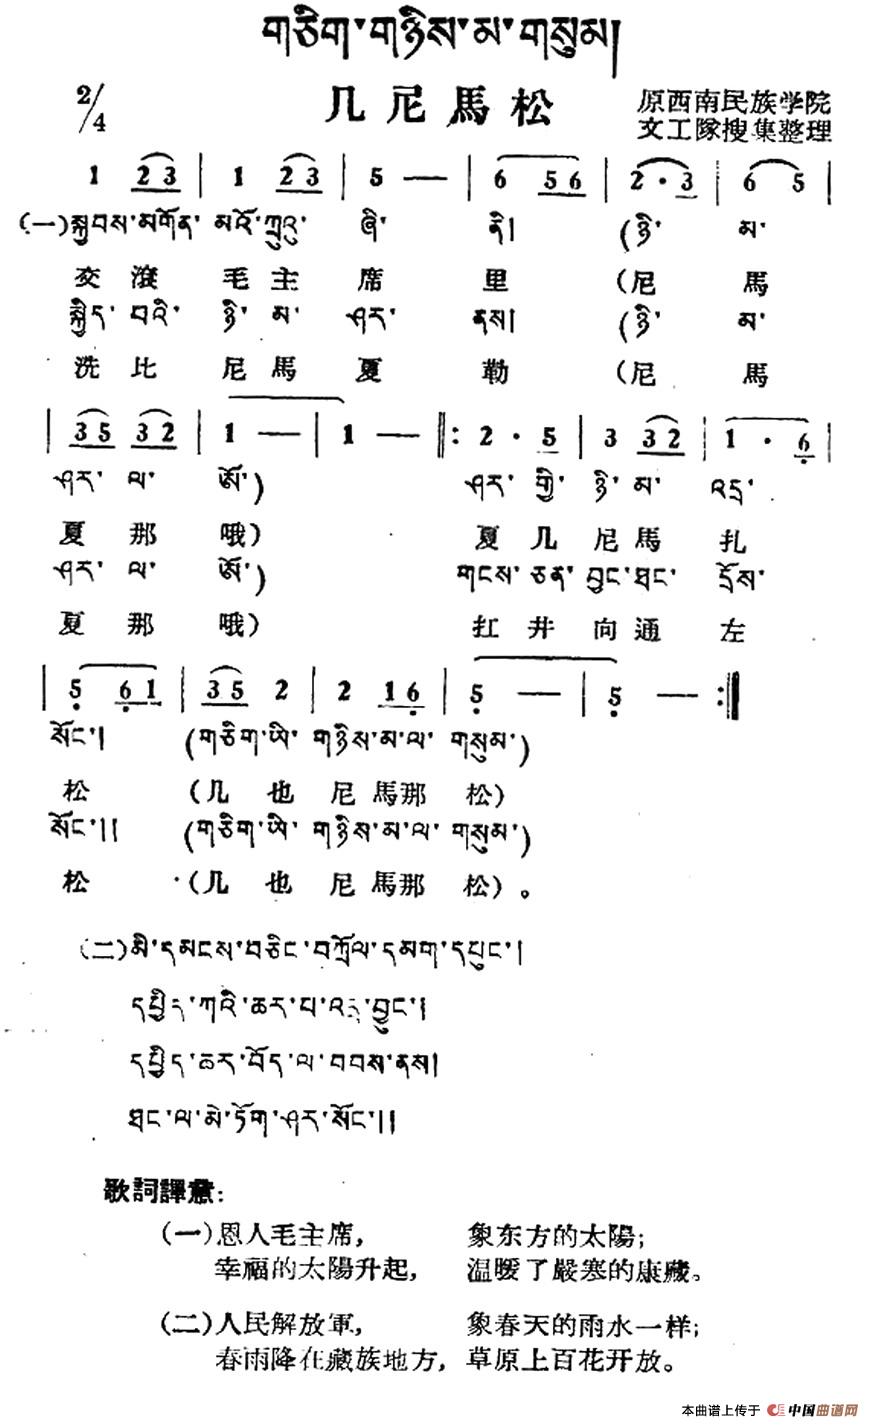 གཅིག་གཉིས་མ་གསུམ།
2/4 几尼馬松 原西南民族学院
文工隊搜集整理
1 2 3 | 1 2 3 | 5 — | 6 5 6 | 2 · 3 | 6 5 |
(一)སྐྱབས་མགོན་ མའོ་ཀྲུའུ་ ཞི་ ནི། (ཉི་ མ་
交滾毛主席里(尼馬
སྐྱིད་ བའི་ ཉི་ མ་ ཤར་ ནས། (ཉི་ མ་
洗比尼馬夏勒(尼馬
| 3 5 3 2 | 1 — | 1 — ‖: 2 · 5 | 3 3 2 | 1 · 6 |
ཤར་ ལ་ ཨོ་) ཤར་ གྱི་ ཉི་ མ་ འདྲ་
夏那哦) 夏几尼馬扎
ཤར་ ལ་ ཨོ་) གངས་ ཅན་ བྱང་ཐང་ དྲོས་
夏那哦) 扛井向通左
| 5 6 1 | 3 5 2 | 2 1 6 | 5 — | 5 — :‖
སོང་། (གཅིག་ཡི་ གཉིས་མ་ལ་ གསུམ་)
松 (几也尼馬那松)
སོང་།། (གཅིག་ཡི་ གཉིས་མ་ལ་ གསུམ་)
松 (几也尼馬那松)。
(二)མི་དམངས་བཅིང་བཀྲོལ་དམག་དཔུང་།
དཔྱིད་ཀའི་ཆར་པ་འདྲ་བྱུང་།
དཔྱིད་ཆར་བོད་ལ་བབས་ནས།
ཐང་ལ་མེ་ཏོག་ཤར་སོང་།།
歌詞譯意:
(一)恩人毛主席, 象东方的太陽;
幸福的太陽升起, 温暖了嚴寒的康藏。
(二)人民解放軍, 象春天的雨水一样;
春雨降在藏族地方, 草原上百花开放。
本曲谱上传于 中国曲谱网